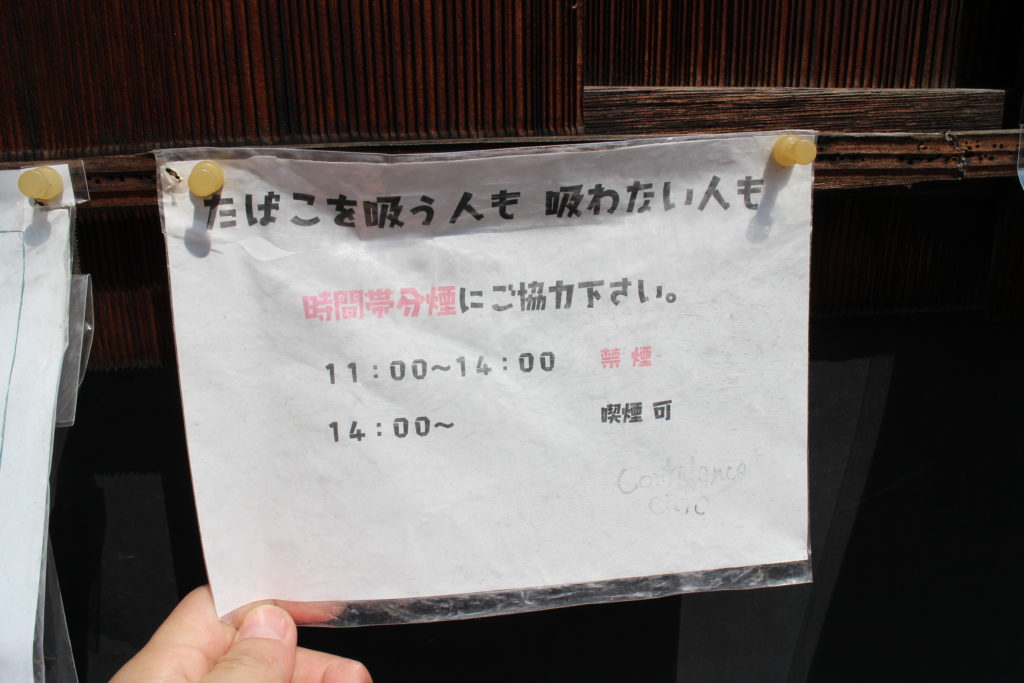 たばこを吸う人も 吸わない人も
時間帯分煙にご協力下さい。
11:00〜14:00 禁煙
14:00〜 喫煙 可